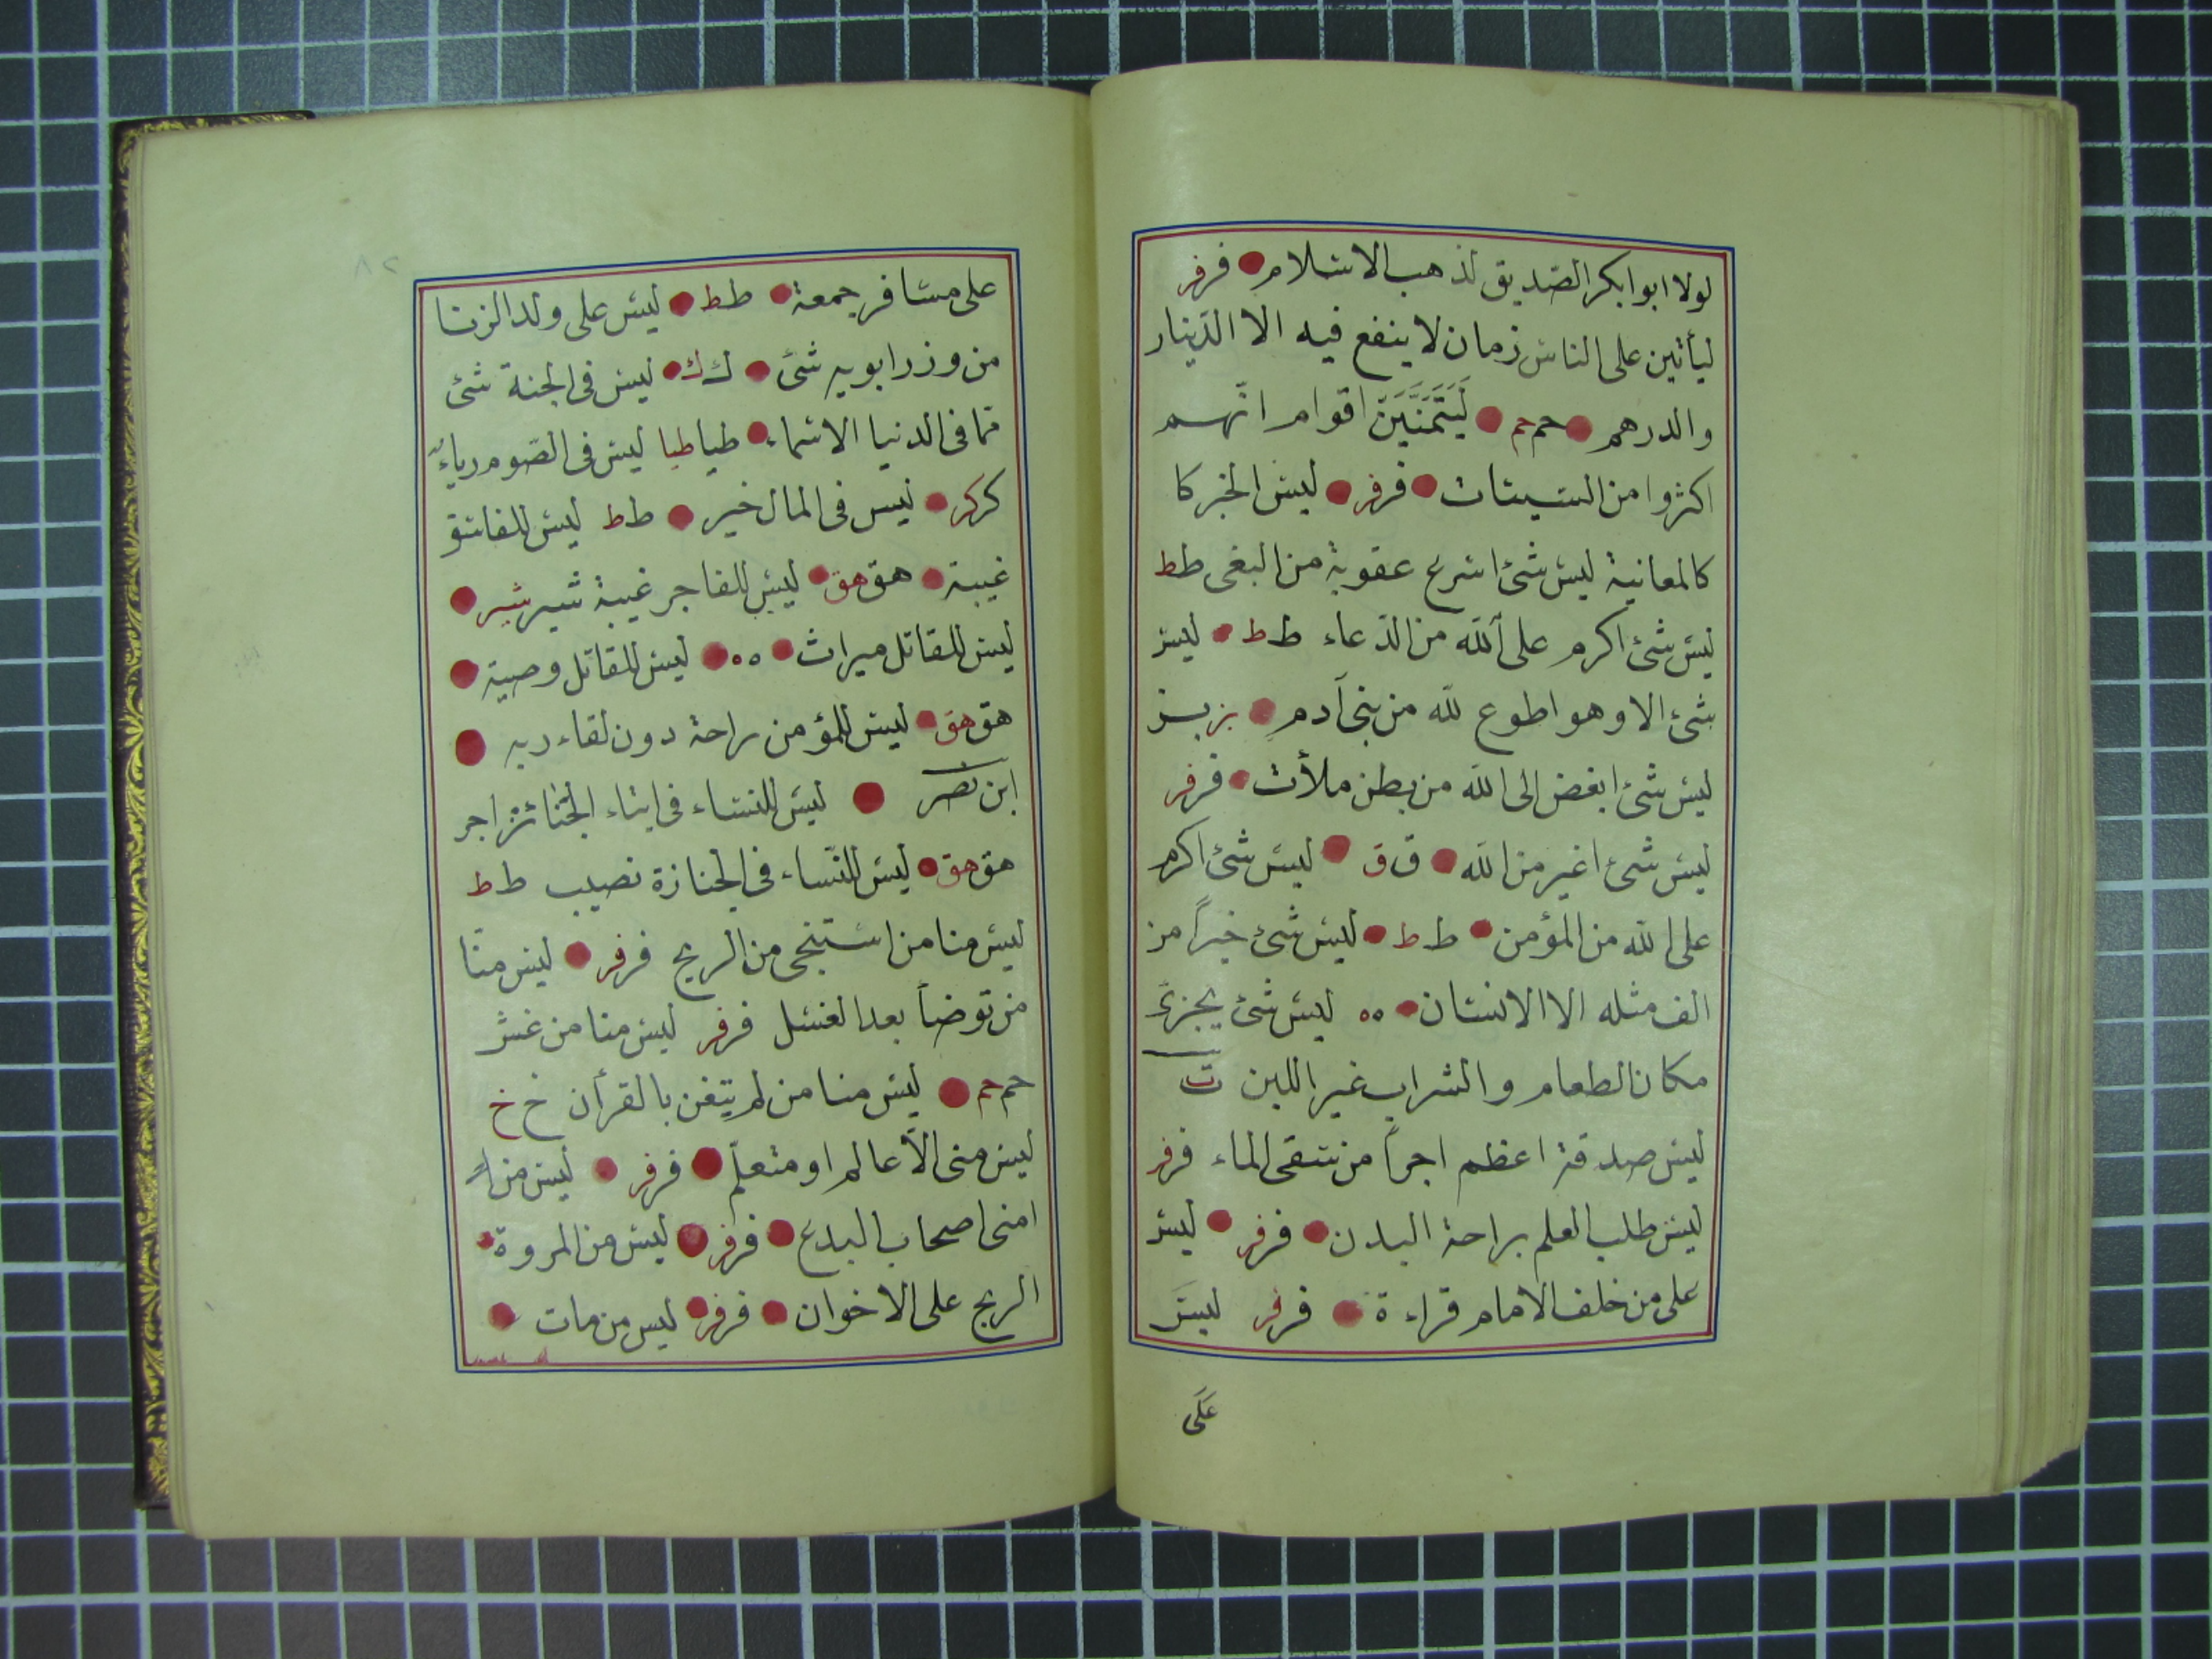 لولا ابوا بكر الصّديق لذهب الاسلام فر فر
ليأتين على الناس زمان لا ينفع فيه الا الدّينار
والدرهم حم حم لَيَتَمَنَّيَنَّ اقوام انّهم
اكثروا من السيئات فر فر ليس الخبر كا
كالمعانية ليس شئ اسرع عقوبة من البغى ط ط
ليس شئ اكرم على الله من الدّعاء ط ط ليس
شئ الا وهو اطوع لله من بنى آدم بز بز
ليس شئ ابغض الى الله من بطن ملأت فر فر
ليس شئ اغير من الله ق ق ليس شئ اكرم
على الله من المؤمن ط ط ليس شئ خيراً من
الف مثله الا الانسان ه ه ليس شئ يجزئ
مكان الطعام والشراب غير اللبن ت
ليس صدقة اعظم اجراً من سقى الماء فر فر
ليس طلب العلم براحة البدن فر فر ليس
على من خلف الامام قراءة فر فر ليس
عَلَى
٨٢
على مسافر جمعة ط ط ليس على ولد الزنا
من وزر ابويه شئ ك ك ليس فى الجنة شئ
مما فى الدنيا الا اسماء طيا طيا ليس فى الصوم رياء
كر كر ليس فى المال خير ط ط ليس للفاسق
غيبة هق هق ليس للفاجر غيبة شير شير
ليس للقاتل ميراث ه ه ليس للقاتل وصية
هق هق ليس للمؤمن راحة دون لقاء ربه
ابن نصر ليس للنساء فى ابتاء الجنائز اجر
هق هق ليس للنّساء فى الجنازة نصيب ط ط
ليس منا من استنجى من الريح فر فر ليس منّا
من توضأ بعد الغسل فر فر ليس منا من غش
حم حم ليس منا من لم يتغن بالقرأن خ خ
ليس منى الّا عالم او متعلّم فر فر ليس من
امنى اصحاب البدع فر فر ليس من المروة
الربح على الاخوان فر فر ليس من مات